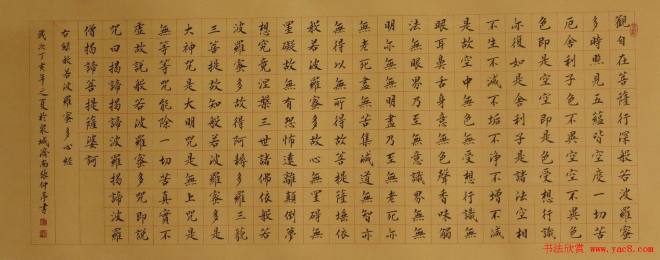 觀自在菩薩行深般若波羅蜜
多時照見五蘊皆空度一切苦
厄舍利子色不異空空不異色
色即是空空即是色受想行識
亦復如是舍利子是諸法空相
不生不滅不垢不淨不增不減
是故空中無色無受想行識無
眼耳鼻舌身意無色聲香味觸
法無眼界乃至無意識界無無
明亦無無明盡乃至無老死亦
無老死盡無苦集滅道無智亦
無得以無所得故菩提薩埵依
般若波羅蜜多故心無罣礙無
罣礙故無有恐怖遠離顛倒夢
想究竟涅槃三世諸佛依般若
波羅蜜多故得阿耨多羅三藐
三菩提故知般若波羅蜜多是
大神咒是大明咒是無上咒是
無等等咒能除一切苦真實不
虛故說般若波羅蜜多咒即說
咒曰揭諦揭諦波羅揭諦波羅
僧揭諦菩提薩婆訶
右錄般若波羅蜜多心經
歲次丁亥年之夏於泉城濟南張仲亭書
书法欣赏
www.yac8.com